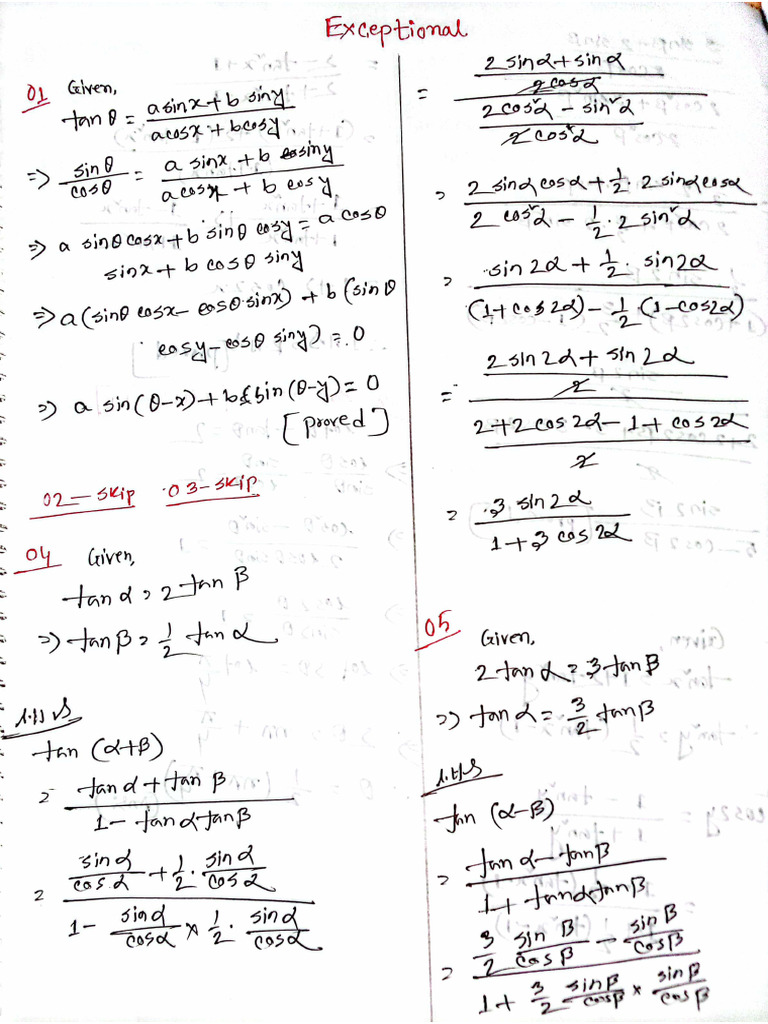 Exceptional
01 Given,
tanθ = (a sinx + b siny)/(a cosx + b cosy).
⇒ sinθ/cosθ = (a sinx + b siny)/(a cosx + b cosy)
⇒ a sinθ cosx + b sinθ cosy = a cosθ
sinx + b cosθ siny
⇒ a (sinθ cosx - cosθ sinx) + b (sinθ
cosy - cosθ siny) = 0
⇒ a sin(θ-x) + b sin(θ-y) = 0
[proved]
02 - skip 03 - skip
04 Given,
tanα = 2 tanβ
⇒ tanβ = 1/2 tanα
L.H.S
tan (α+β)
= (tanα + tanβ)/(1 - tanα tanβ)
= (sinα/cosα + 1/2 · sinα/cosα)/(1 - sinα/cosα × 1/2 · sinα/cosα)
= ((2 sinα + sinα)/(2 cosα))/((2cos²α - sin²α)/(2cos²α))
= (2 sinα cosα + 1/2 · 2 sinα cosα)/(2 cos²α - 1/2 · 2 sin²α)
= (sin2α + 1/2 · sin2α)/((1+cos2α) - 1/2 (1-cos2α))
= ((2 sin2α + sin2α)/2)/((2+2cos2α - 1 + cos2α)/2)
= 3 sin2α/(1 + 3 cos2α)
05 Given,
2 tanα = 3 tanβ
⇒ tanα = 3/2 tanβ
L.H.S
tan (α-β)
= (tanα - tanβ)/(1 + tanα tanβ)
= (3/2 sinβ/cosβ - sinβ/cosβ)/(1 + 3/2 sinβ/cosβ × sinβ/cosβ)